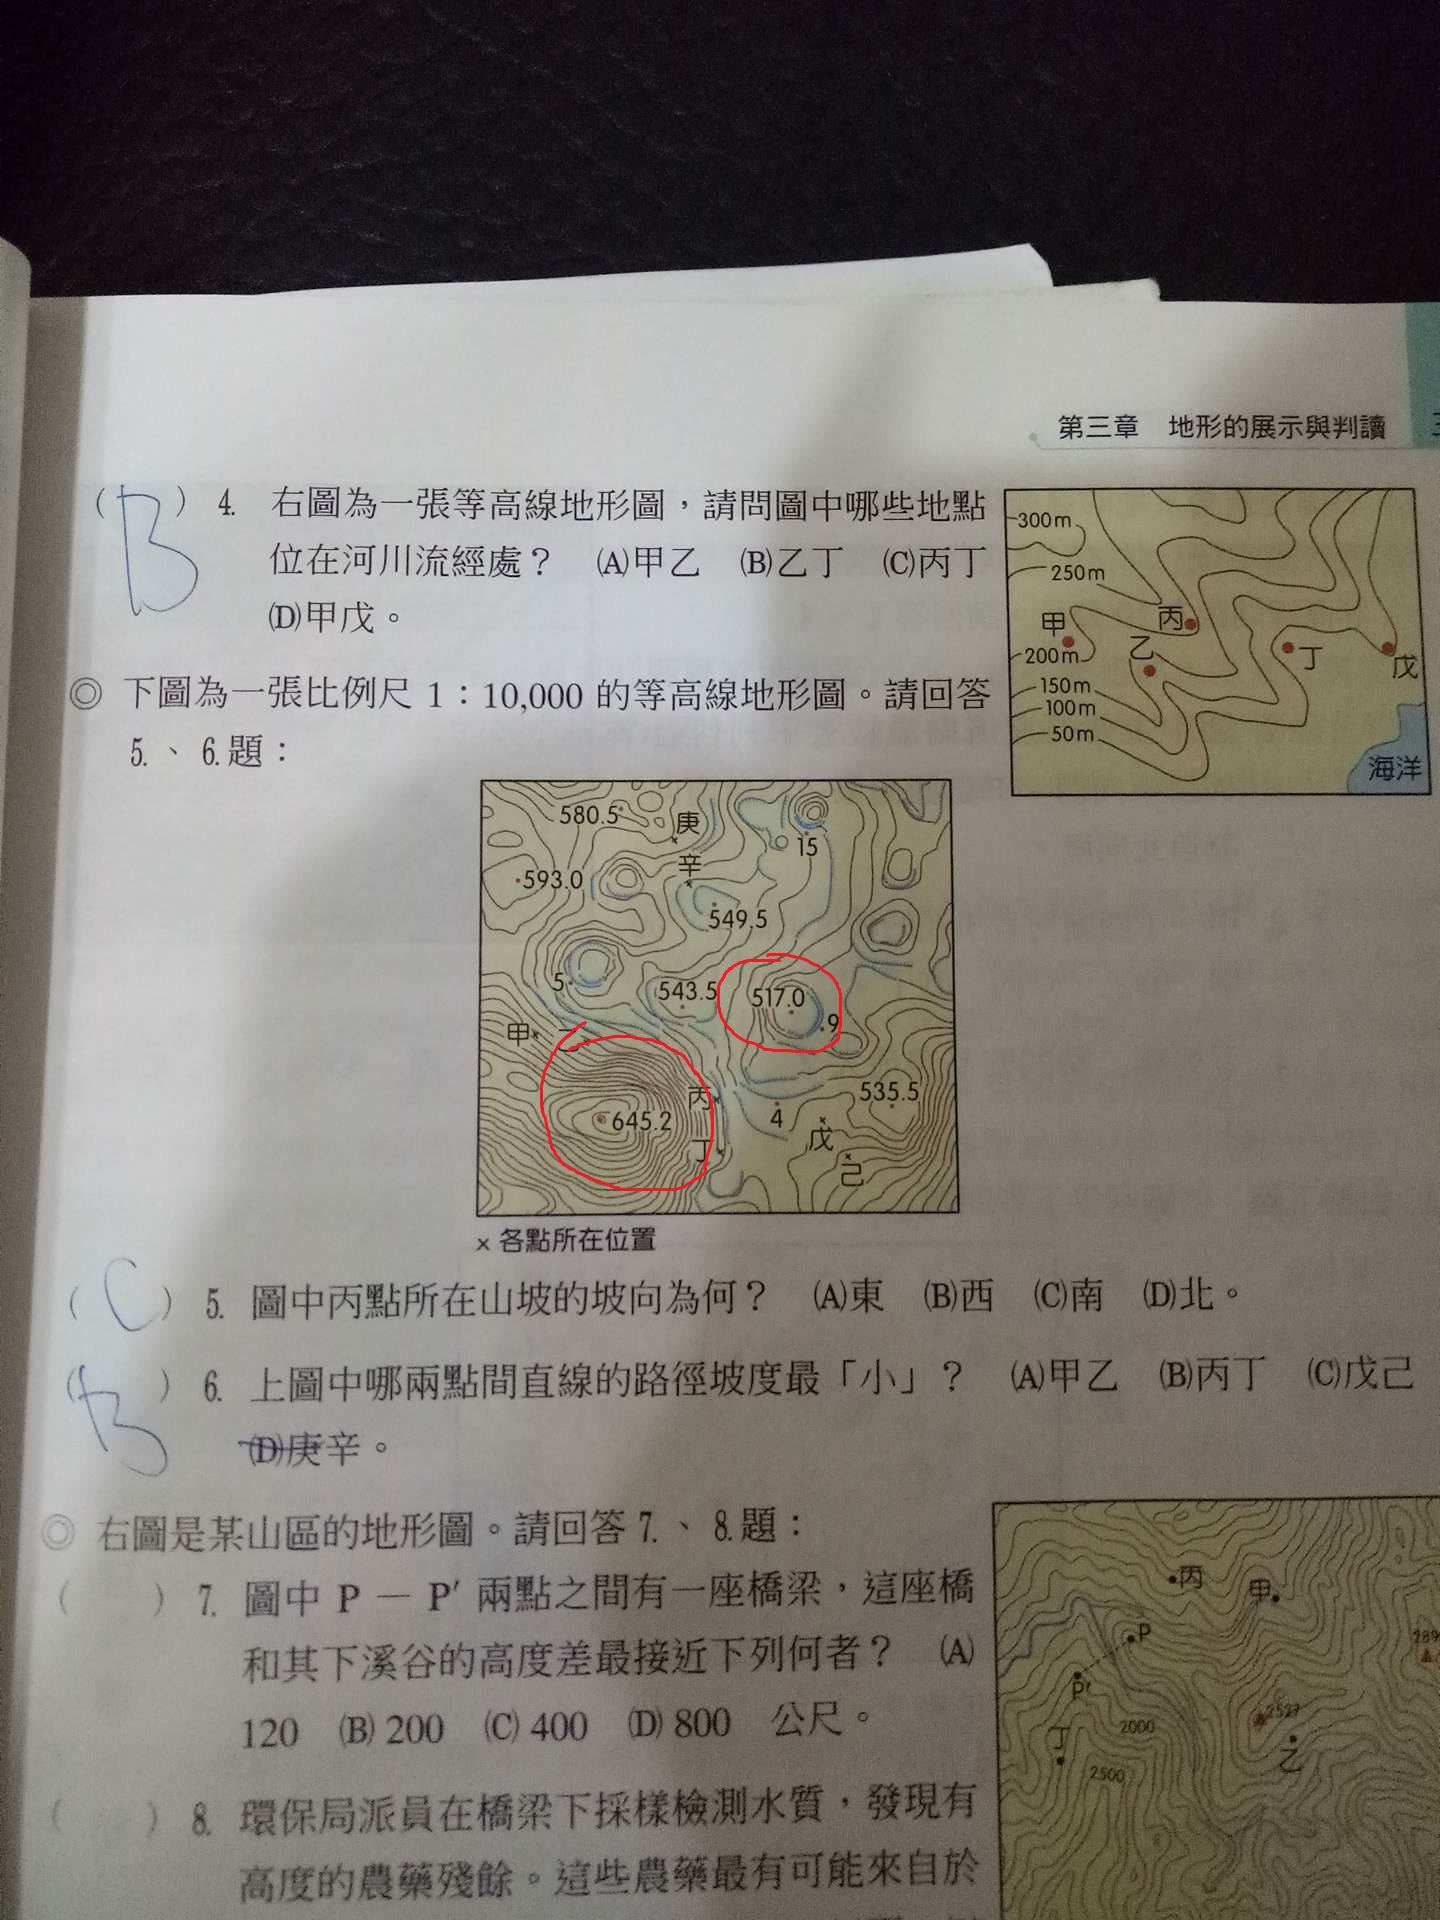 第三章　地形的展示與判讀
(B) 4. 右圖為一張等高線地形圖，請問圖中哪些地點
位在河川流經處？ (A)甲乙 (B)乙丁 (C)丙丁
(D)甲戊。
300m
250m
甲
丙
乙
200m
丁
戊
150m
100m
50m
海洋
◎ 下圖為一張比例尺 1：10,000 的等高線地形圖。請回答
5.、6.題：
580.5
庚
15
辛
593.0
549.5
5
543.5
517.0
9
甲
乙
丙
535.5
645.2
4
戊
丁
己
× 各點所在位置
(C) 5. 圖中丙點所在山坡的坡向為何？ (A)東 (B)西 (C)南 (D)北。
(B) 6. 上圖中哪兩點間直線的路徑坡度最「小」？ (A)甲乙 (B)丙丁 (C)戊己
(D)庚辛。
◎ 右圖是某山區的地形圖。請回答 7.、8.題：
( ) 7. 圖中 P － P′ 兩點之間有一座橋梁，這座橋
和其下溪谷的高度差最接近下列何者？ (A)
120 (B) 200 (C) 400 (D) 800 公尺。
( ) 8. 環保局派員在橋梁下採樣檢測水質，發現有
高度的農藥殘餘。這些農藥最有可能來自於
丙
甲
P
P′
2527
2000
丁
乙
2500